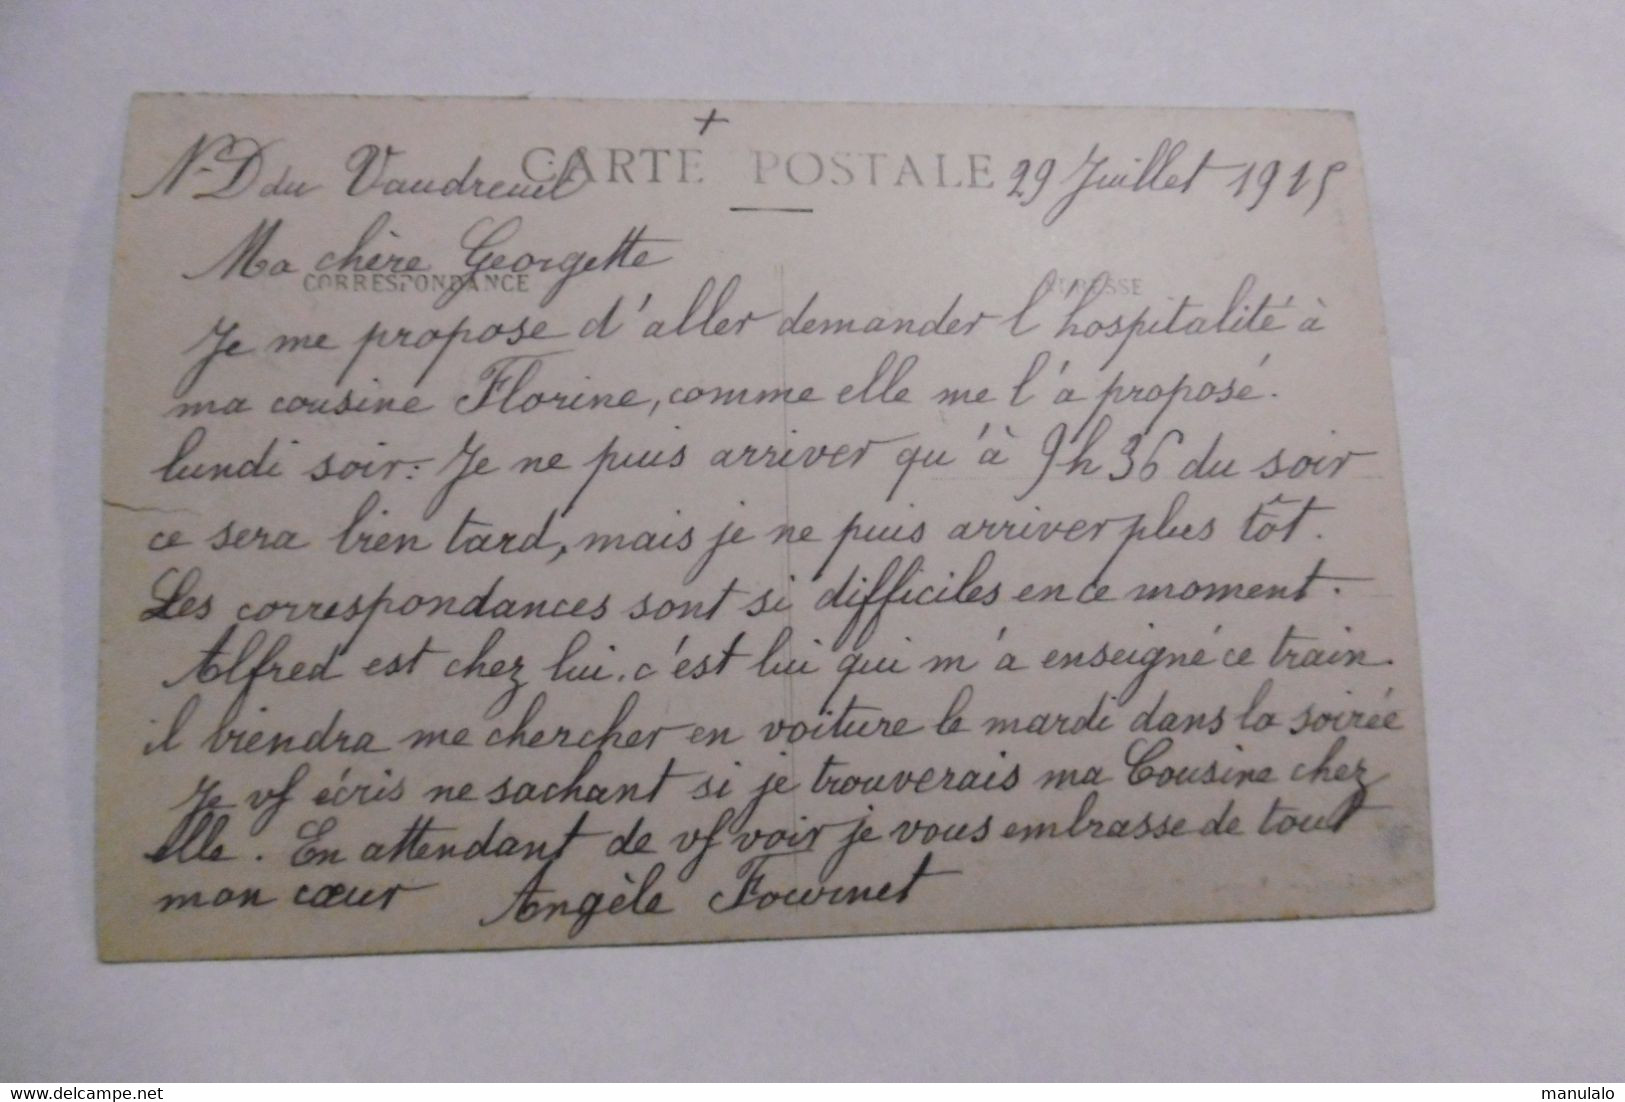 +
N-D du Vaudreuil CARTE POSTALE 29 Juillet 1915
Ma chère Georgette
CORRESPONDANCE ADRESSE
Je me propose d'aller demander l'hospitalité à
ma cousine Florine, comme elle me l'a proposé.
lundi soir. Je ne puis arriver qu'à 9h36 du soir
ce sera bien tard, mais je ne puis arriver plus tôt.
Les correspondances sont si difficiles en ce moment.
Alfred est chez lui. c'est lui qui m'a enseigné ce train.
il viendra me chercher en voiture le mardi dans la soirée
Je vs écris ne sachant si je trouverais ma Cousine chez
elle. En attendant de vs voir je vous embrasse de tout
mon cœur Angèle Fournet
www.delcampe.net
manulalo